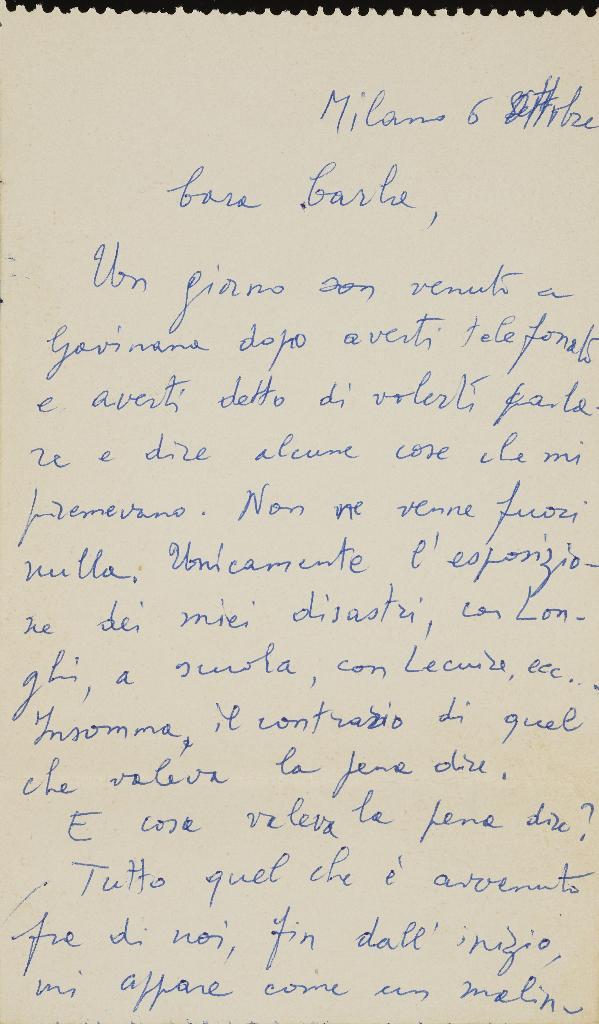 Milano 6 Ottobre
Cara Carla,
Un giorno son venuto a
Gavinana dopo averti telefonato
e averti detto di volerti parla-
re e dire alcune cose che mi
premevano. Non ne venne fuori
nulla. Unicamente l'esposizio-
ne dei miei disastri, con Lon-
ghi, a scuola, con Lecuire, ecc...
Insomma, il contrario di quel
che valeva la pena dire.
E cosa valeva la pena dire?
Tutto quel che è avvenuto
fra di noi, fin dall'inizio,
mi appare come un malin-